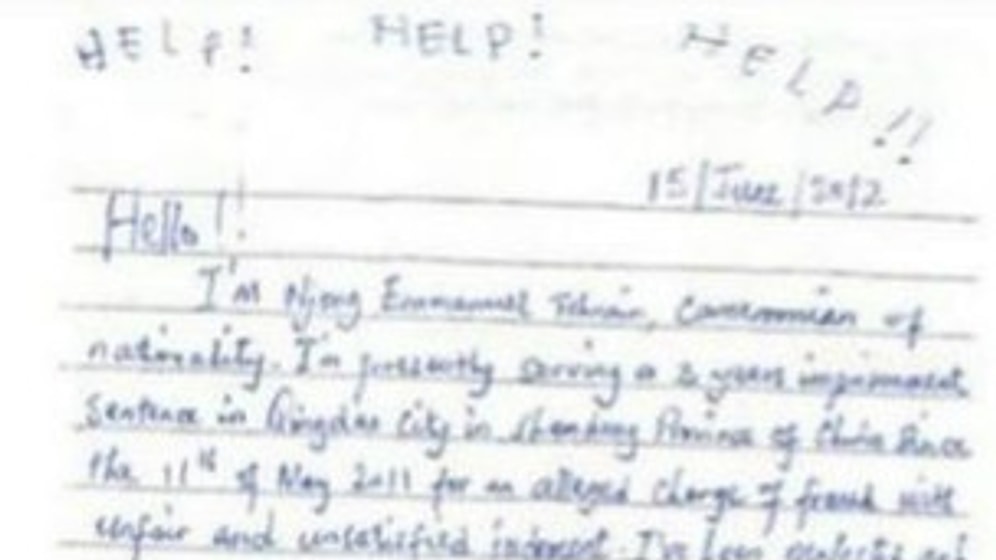 HELP! HELP! HELP!!
15/June/2012
Hello!!
I'm Njong Emmanuel Tohnain, Cameroonian of
nationality. I'm presently serving a 3 years imprisonment
sentence in Qingdao City in Shandong Province of China since
the 11th of May 2011 for an alleged charge of fraud with
unfair and unsatisfied judgment. I've been